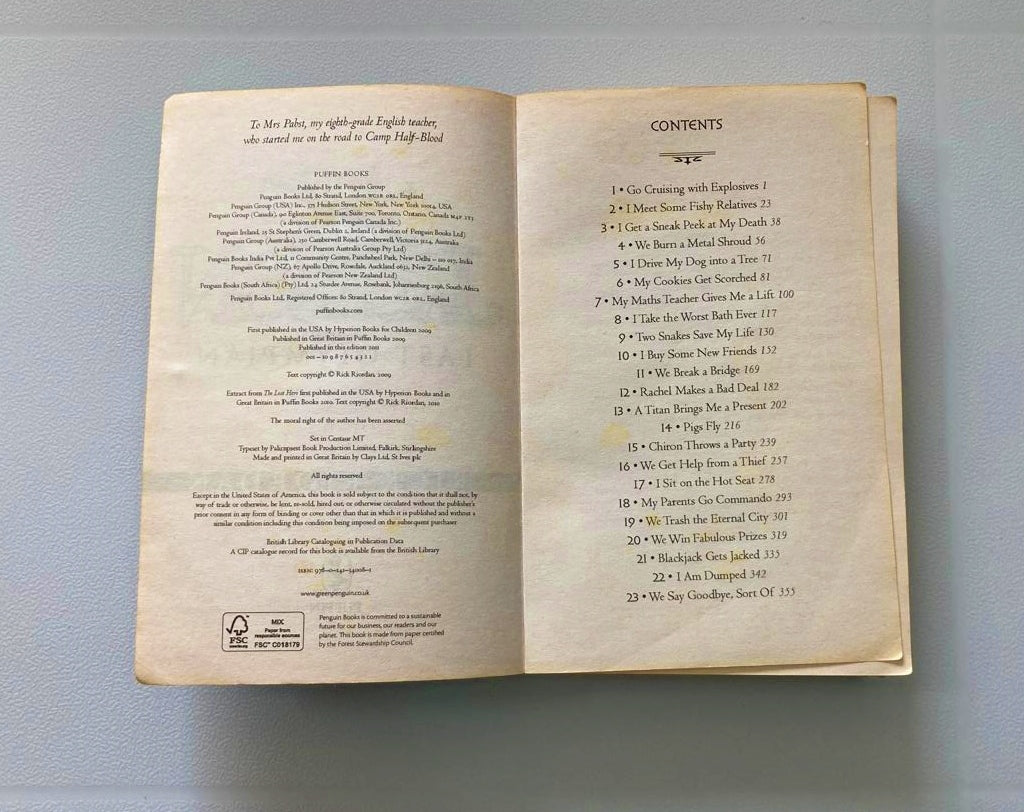 To Mrs Pabst, my eighth-grade English teacher,
who started me on the road to Camp Half-Blood
PUFFIN BOOKS
Published by the Penguin Group
Penguin Books Ltd, 80 Strand, London WC2R 0RL, England
Penguin Group (USA) Inc., 375 Hudson Street, New York, New York 10014, USA
Penguin Group (Canada), 90 Eglinton Avenue East, Suite 700, Toronto, Ontario, Canada M4P 2Y3
(a division of Pearson Penguin Canada Inc.)
Penguin Ireland, 25 St Stephen's Green, Dublin 2, Ireland (a division of Penguin Books Ltd)
Penguin Group (Australia), 250 Camberwell Road, Camberwell, Victoria 3124, Australia
(a division of Pearson Australia Group Pty Ltd)
Penguin Books India Pvt Ltd, 11 Community Centre, Panchsheel Park, New Delhi – 110 017, India
Penguin Group (NZ), 67 Apollo Drive, Rosedale, Auckland 0632, New Zealand
(a division of Pearson New Zealand Ltd)
Penguin Books (South Africa) (Pty) Ltd, 24 Sturdee Avenue, Rosebank, Johannesburg 2196, South Africa
Penguin Books Ltd, Registered Offices: 80 Strand, London WC2R 0RL, England
puffinbooks.com
First published in the USA by Hyperion Books for Children 2009
Published in Great Britain in Puffin Books 2009
Published in this edition 2011
001 – 10 9 8 7 6 5 4 3 2 1
Text copyright © Rick Riordan, 2009
Extract from The Lost Hero first published in the USA by Hyperion Books and in
Great Britain in Puffin Books 2010. Text copyright © Rick Riordan, 2010
The moral right of the author has been asserted
Set in Centaur MT
Typeset by Palimpsest Book Production Limited, Falkirk, Stirlingshire
Made and printed in Great Britain by Clays Ltd, St Ives plc
All rights reserved
Except in the United States of America, this book is sold subject to the condition that it shall not, by
way of trade or otherwise, be lent, re-sold, hired out, or otherwise circulated without the publisher's
prior consent in any form of binding or cover other than that in which it is published and without a
similar condition including this condition being imposed on the subsequent purchaser
British Library Cataloguing in Publication Data
A CIP catalogue record for this book is available from the British Library
ISBN: 978-0-141-34008-1
www.greenpenguin.co.uk
FSC
MIX
Paper from
responsible sources
FSC™ C018179
Penguin Books is committed to a sustainable
future for our business, our readers and our
planet. This book is made from paper certified
by the Forest Stewardship Council.
CONTENTS
1 • Go Cruising with Explosives 1
2 • I Meet Some Fishy Relatives 23
3 • I Get a Sneak Peek at My Death 38
4 • We Burn a Metal Shroud 56
5 • I Drive My Dog into a Tree 71
6 • My Cookies Get Scorched 81
7 • My Maths Teacher Gives Me a Lift 100
8 • I Take the Worst Bath Ever 117
9 • Two Snakes Save My Life 130
10 • I Buy Some New Friends 152
11 • We Break a Bridge 169
12 • Rachel Makes a Bad Deal 182
13 • A Titan Brings Me a Present 202
14 • Pigs Fly 216
15 • Chiron Throws a Party 239
16 • We Get Help from a Thief 257
17 • I Sit on the Hot Seat 278
18 • My Parents Go Commando 293
19 • We Trash the Eternal City 301
20 • We Win Fabulous Prizes 319
21 • Blackjack Gets Jacked 335
22 • I Am Dumped 342
23 • We Say Goodbye, Sort Of 355